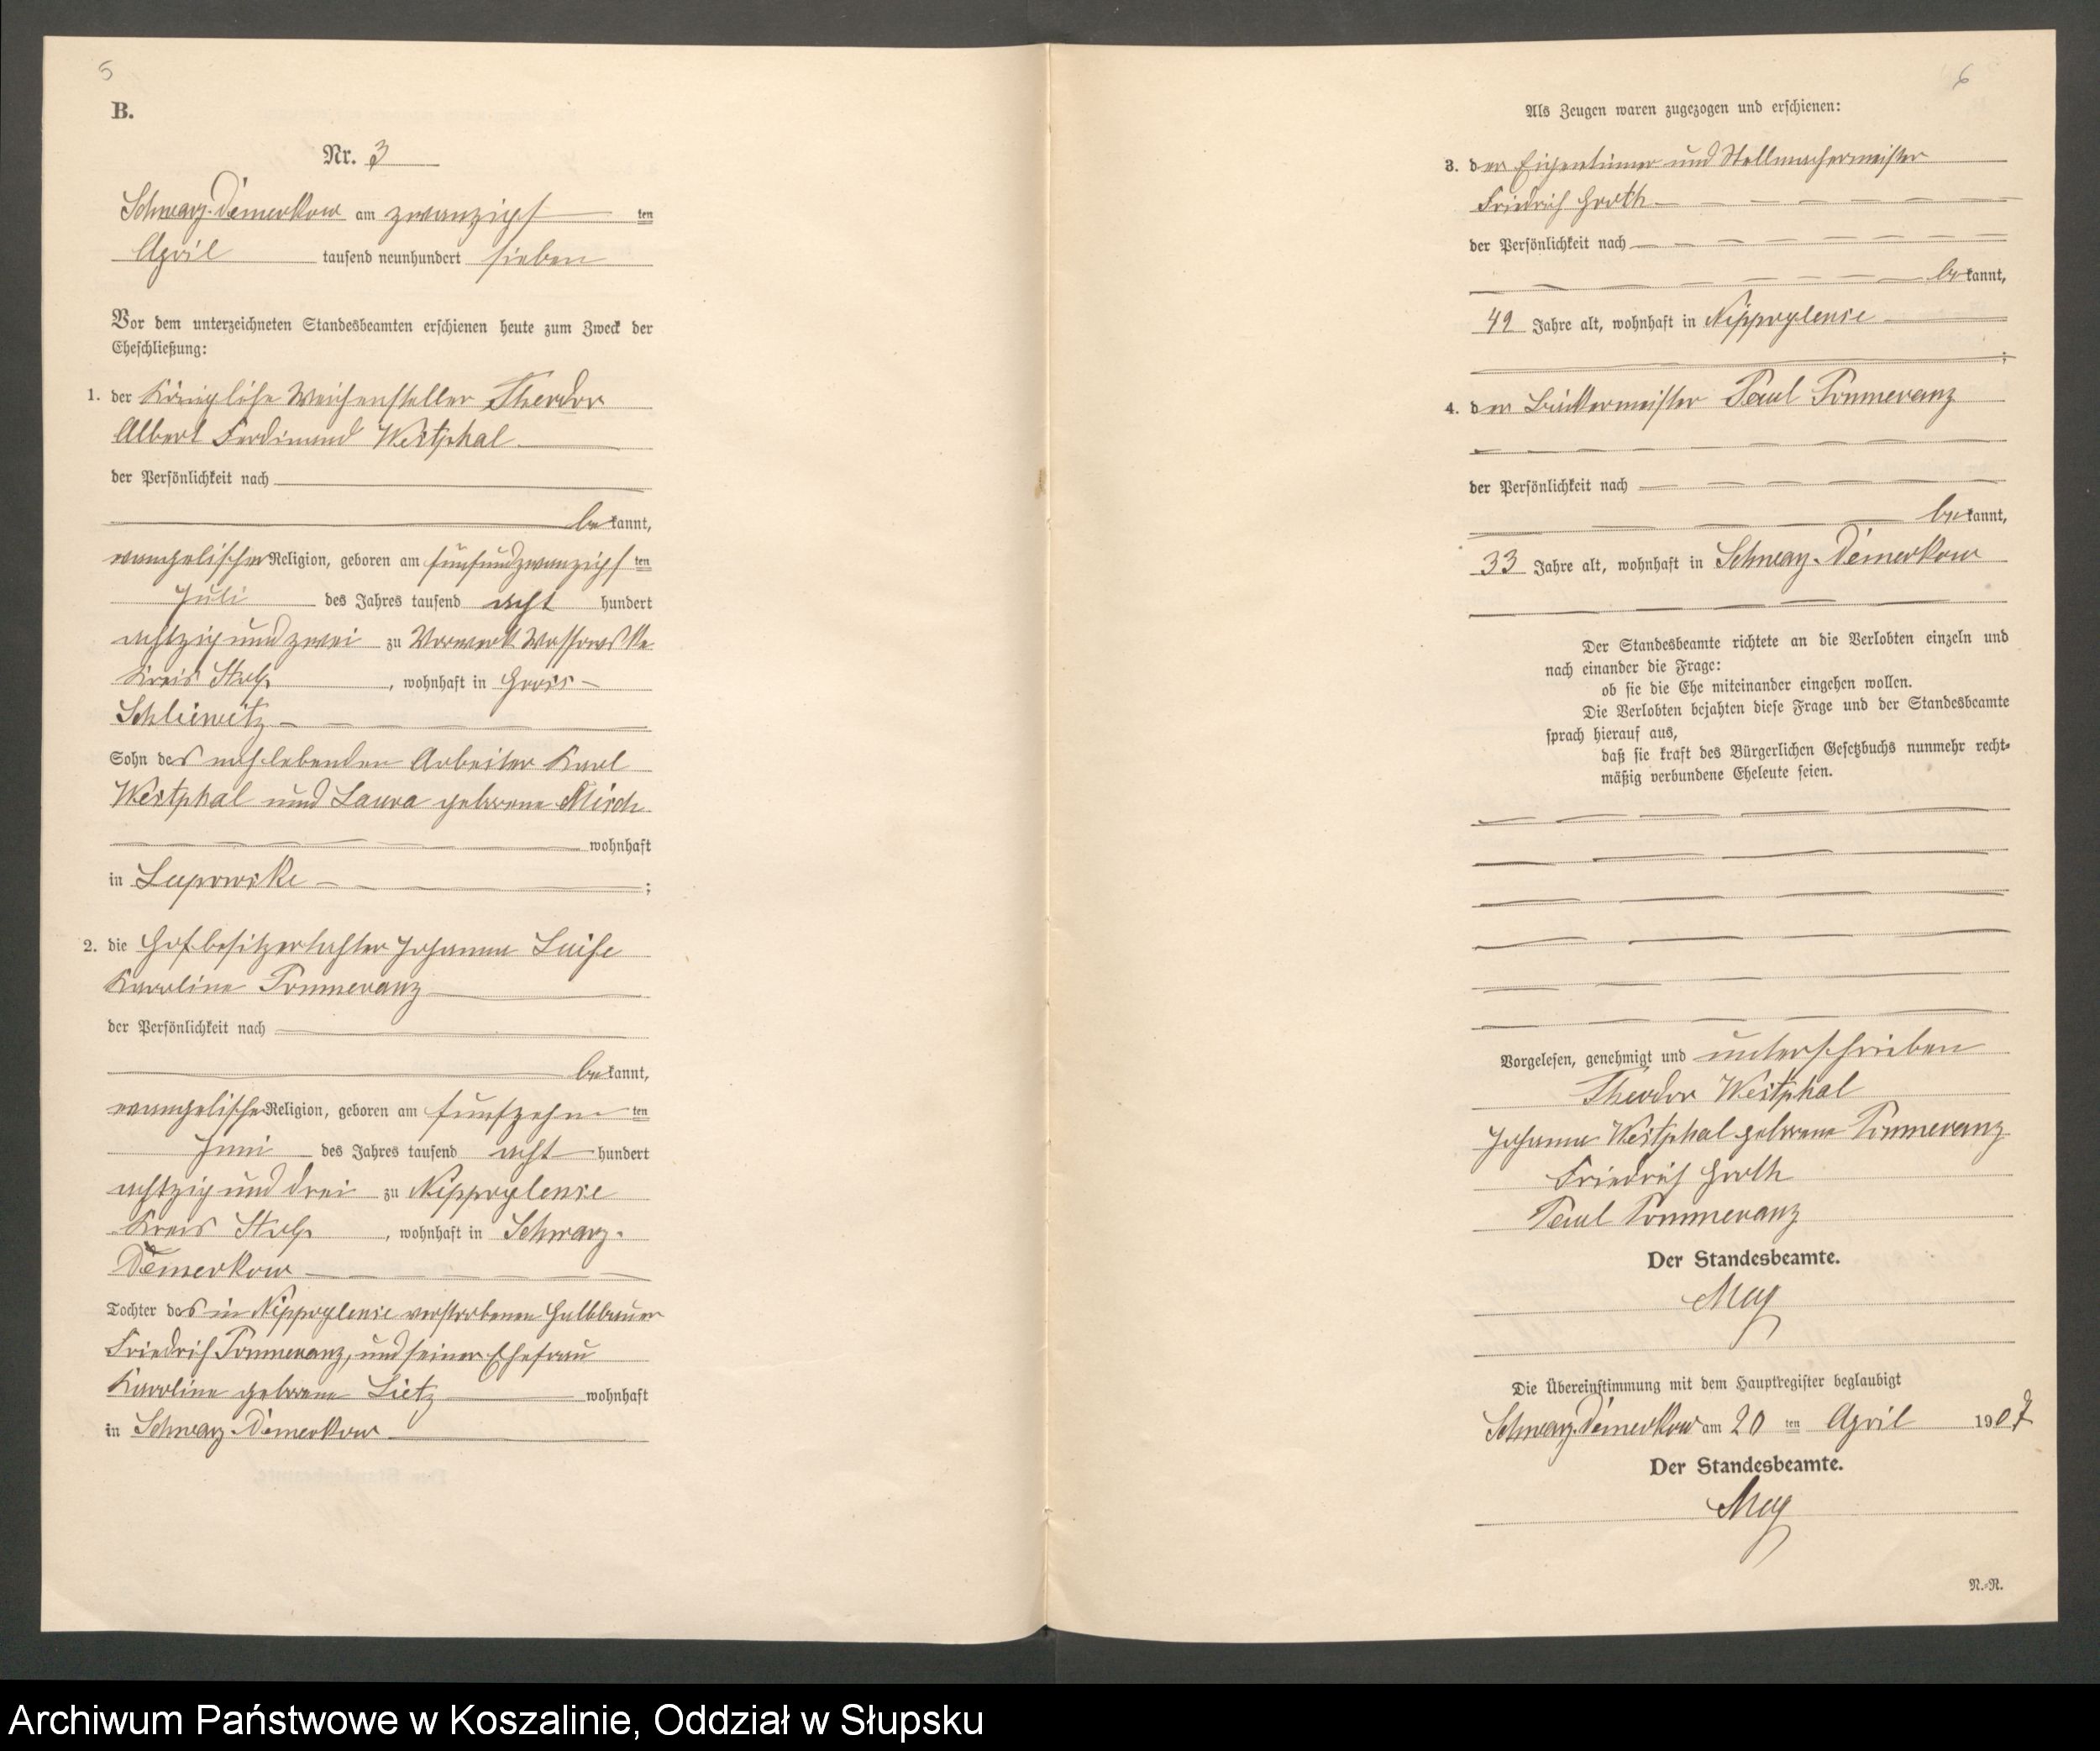 5
B.
Nr. 3
Schwarz-Damerkow am zwanzigs ten
April tausend neunhundert sieben
Vor dem unterzeichneten Standesbeamten erschienen heute zum Zweck der
Eheschließung:
1. der Königliche Weichensteller Theodor
Albert Ferdinand Westphal
der Persönlichkeit nach
be kannt,
evangelischer Religion, geboren am fünfundzwanzigs ten
Juli des Jahres tausend acht hundert
achtzig und zwei zu Vorwerk
Kreis Stolp, wohnhaft in Gross-
Schliewitz
Sohn des noch lebenden Arbeiter Karl
Westphal und Laura geborene
wohnhaft
in Lupowske;
2. die Hofbesitzertochter Johanna Luise
Karoline Pommeranz
der Persönlichkeit nach
be kannt,
evangelischer Religion, geboren am fünfzehn ten
Juni des Jahres tausend acht hundert
achtzig und drei zu Nippoglense
Kreis Stolp, wohnhaft in Schwarz-
Damerkow
Tochter des in Nippoglense verstorbenen Halbbauer
Friedrich Pommeranz, und seiner Ehefrau
Karoline geborene Lietz wohnhaft
in Schwarz-Damerkow
6
Als Zeugen waren zugezogen und erschienen:
3. der Eigentümer und Stellmachermeister
Friedrich Groth
der Persönlichkeit nach
be kannt,
49 Jahre alt, wohnhaft in Nippoglense
;
4. der Bäckermeister Paul Pommeranz
der Persönlichkeit nach
be kannt,
33 Jahre alt, wohnhaft in Schwarz-Damerkow
Der Standesbeamte richtete an die Verlobten einzeln und
nach einander die Frage:
ob sie die Ehe miteinander eingehen wollen.
Die Verlobten bejahten diese Frage und der Standesbeamte
sprach hierauf aus,
daß sie kraft des Bürgerlichen Gesetzbuchs nunmehr recht-
mäßig verbundene Eheleute seien.
Vorgelesen, genehmigt und unterschrieben
Theodor Westphal
Johanna Westphal geborene Pommeranz
Friedrich Groth
Paul Pommeranz
Der Standesbeamte.
May
Die Übereinstimmung mit dem Hauptregister beglaubigt
Schwarz-Damerkow am 20 ten April 1907
Der Standesbeamte.
May
N.-R.
Archiwum Państwowe w Koszalinie, Oddział w Słupsku